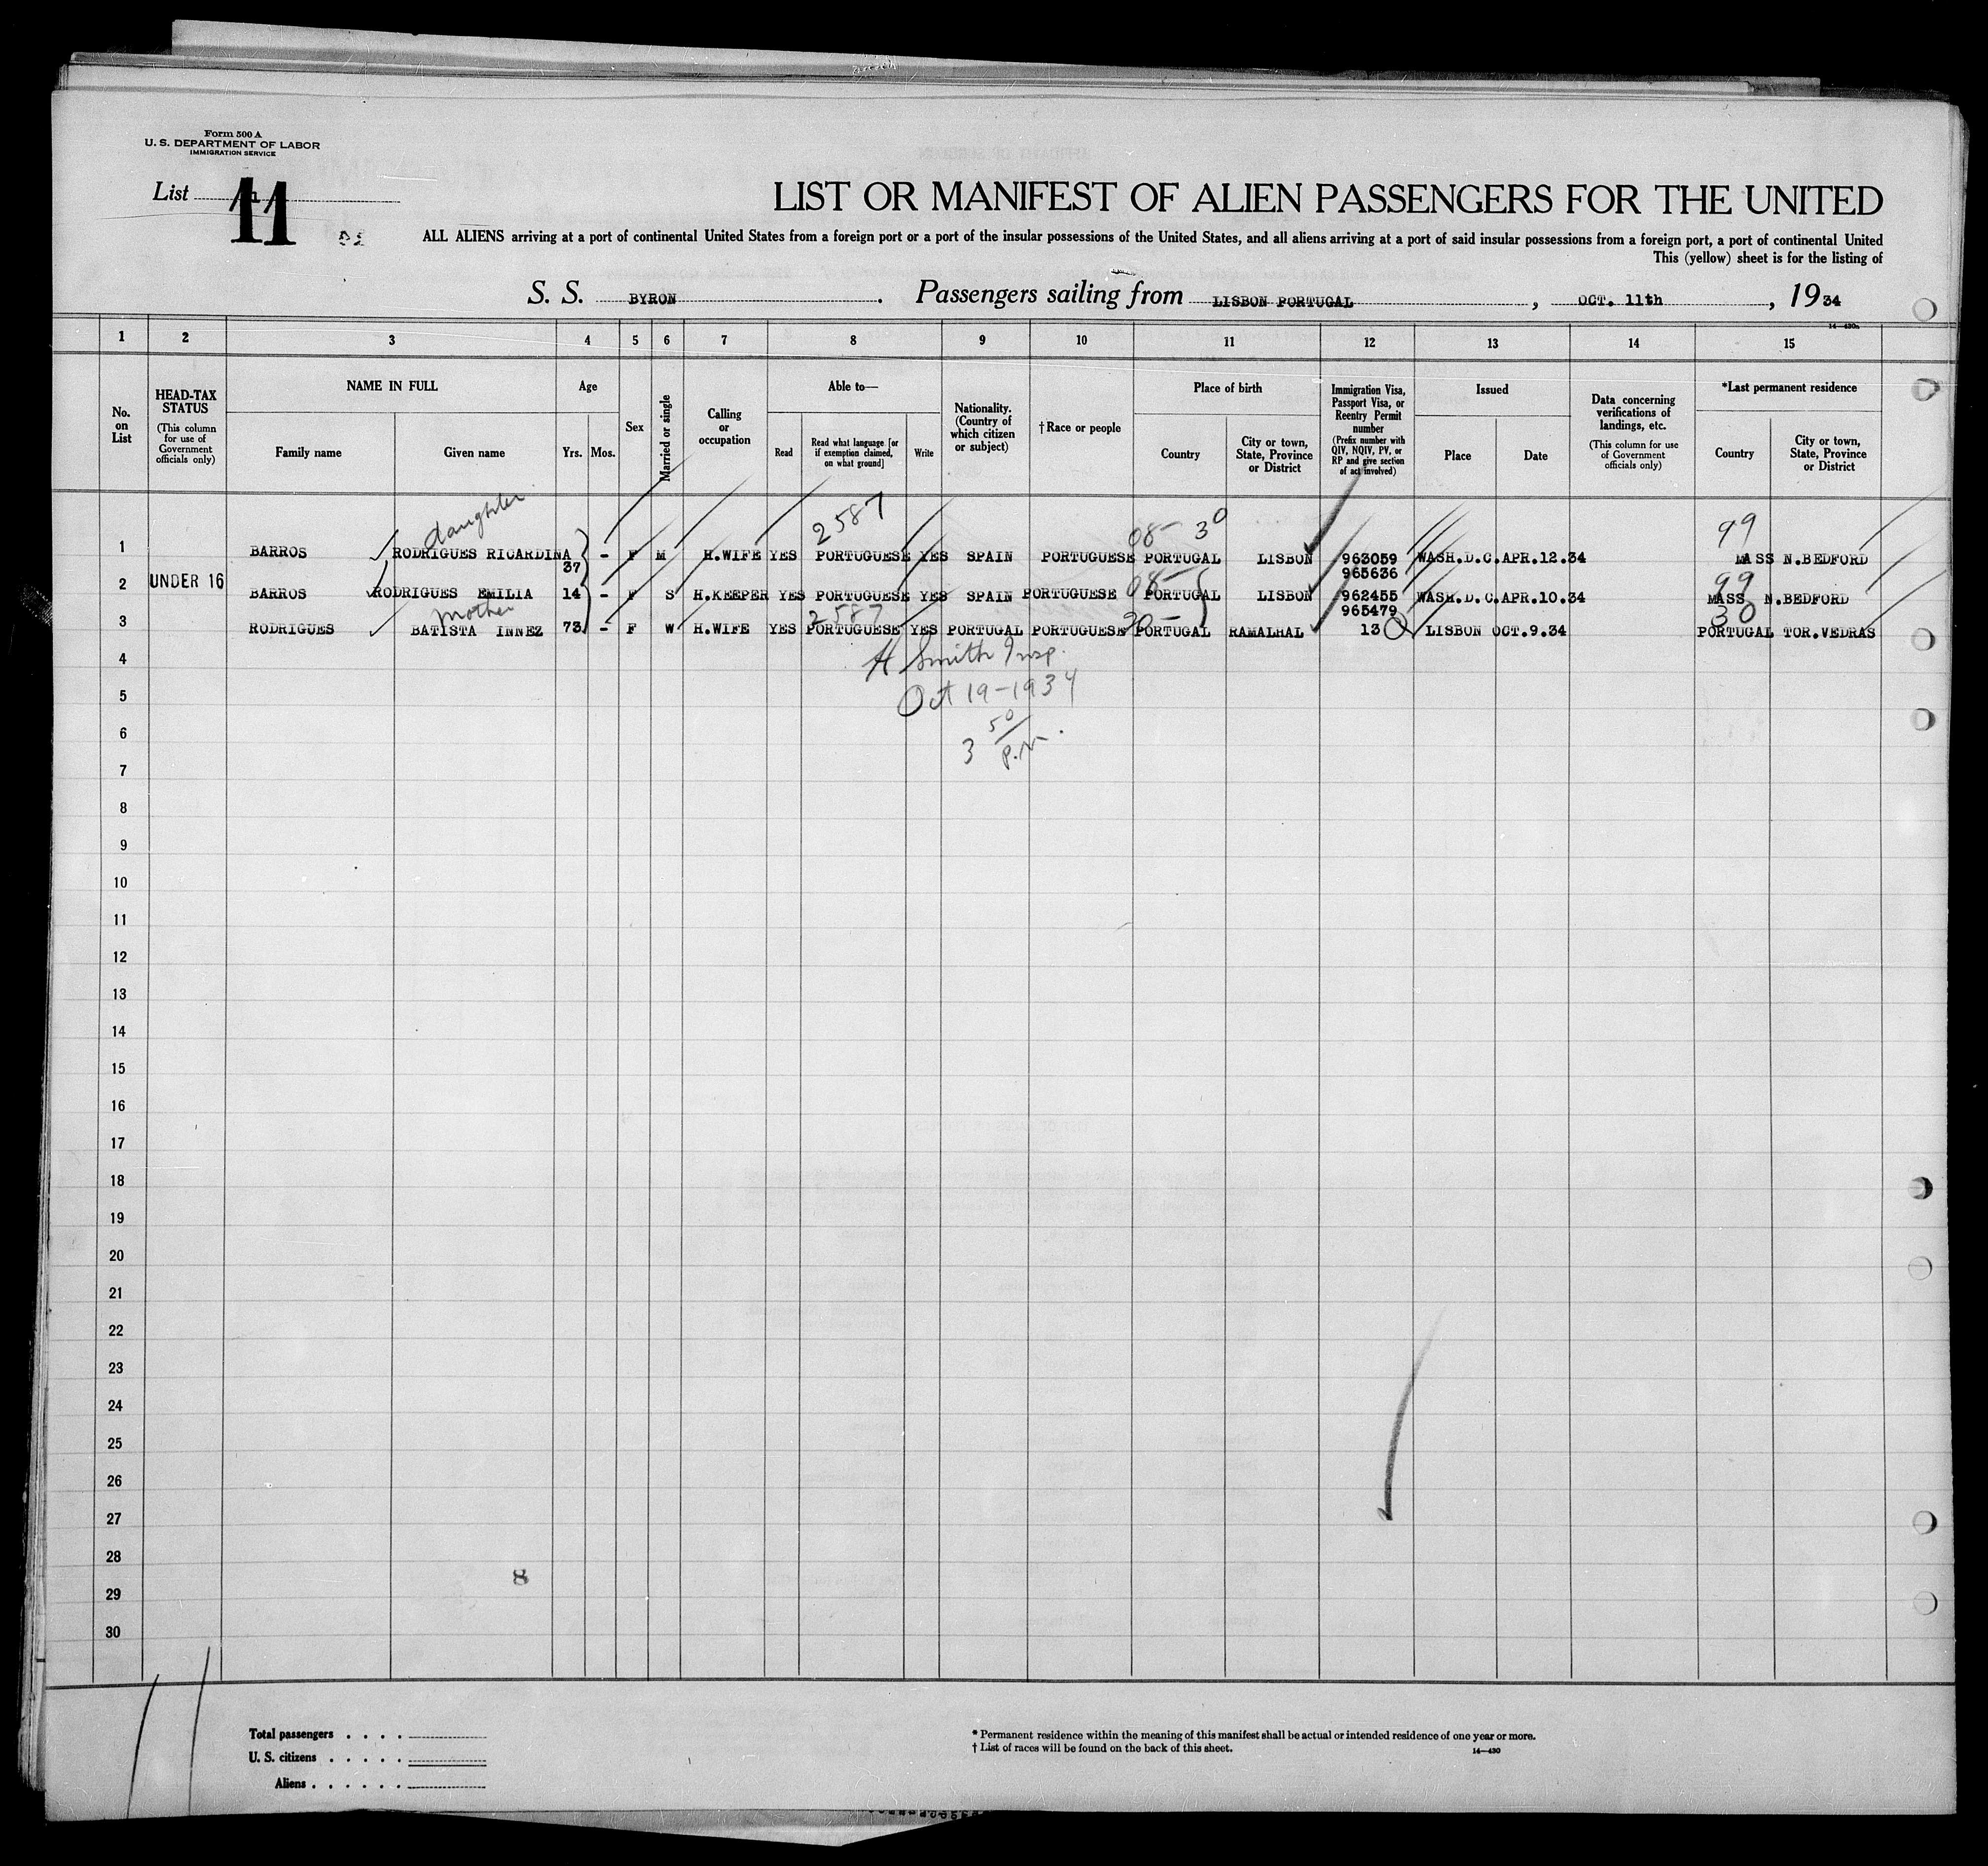 Form 500 A
U. S. DEPARTMENT OF LABOR
IMMIGRATION SERVICE
List 11
LIST OR MANIFEST OF ALIEN PASSENGERS FOR THE UNITED
ALL ALIENS arriving at a port of continental United States from a foreign port or a port of the insular possessions of the United States, and all aliens arriving at a port of said insular possessions from a foreign port, a port of continental United
This (yellow) sheet is for the listing of
S. S. BYRON. Passengers sailing from LISBON PORTUGAL, OCT. 11th, 1934
14—430a
1 2 3 4 5 6 7 8 9 10 11 12 13 14 15
No. on List
HEAD-TAX STATUS (This column for use of Government officials only)
NAME IN FULL Family name Given name
Age Yrs. Mos.
Sex
Married or single
Calling or occupation
Able to— Read Read what language [or if exemption claimed, on what ground] Write
Nationality. (Country of which citizen or subject)
† Race or people
Place of birth Country City or town, State, Province or District
Immigration Visa, Passport Visa, or Reentry Permit number (Prefix number with QIV, NQIV, PV, or RP and give section of act involved)
Issued Place Date
Data concerning verifications of landings, etc. (This column for use of Government officials only)
*Last permanent residence Country City or town, State, Province or District
daughter 2587 08- 30 99
1 BARROS RODRIGUES RICARDINA 37 - F M H.WIFE YES PORTUGUESE YES SPAIN PORTUGUESE PORTUGAL LISBON 963059 WASH.D.C. APR.12.34 MASS N.BEDFORD
965636
08- 99
2 UNDER 16 BARROS RODRIGUES EMILIA 14 - F S H.KEEPER YES PORTUGUESE YES SPAIN PORTUGUESE PORTUGAL LISBON 962455 WASH.D.C. APR.10.34 MASS N.BEDFORD
965479
mother 2587 30
3 RODRIGUES BATISTA INNEZ 73 - F W H.WIFE YES PORTUGUESE YES PORTUGAL PORTUGUESE PORTUGAL RAMALHAL 13 LISBON OCT.9.34 PORTUGAL TOR.VEDRAS
4 H Smith Insp.
5 Oct 19-1934
6 3 50 P.M.
7
8
9
10
11
12
13
14
15
16
17
18
19
20
21
22
23
24
25
26
27
28
8
29
30
Total passengers . . . .
U. S. citizens . . . . .
Aliens . . . . . .
* Permanent residence within the meaning of this manifest shall be actual or intended residence of one year or more.
† List of races will be found on the back of this sheet.
14—430